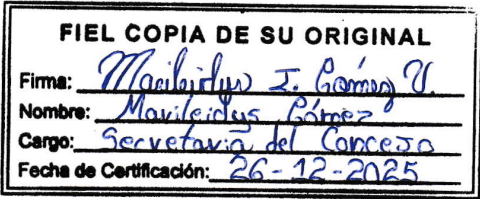 FIEL COPIA DE SU ORIGINAL
Firma: Marileidys I. Gómez V.
Nombre: Marileidys Gómez
Cargo: Secretaria del Concejo
Fecha de Certificación: 26-12-2025